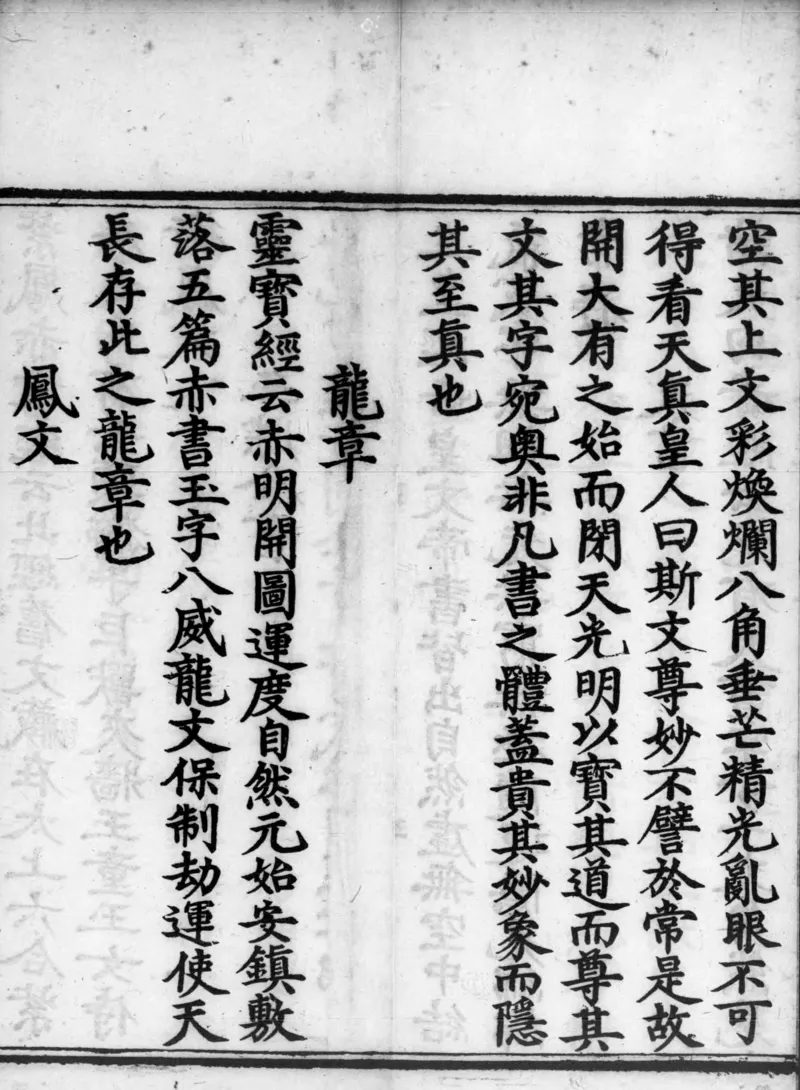 空其上文彩煥爛八角垂芒精光亂眼不可
得看天真皇人曰斯文尊妙不譬於常是故
開大有之始而閉天光明以寶其道而尊其
文其字宛奧非凡書之體蓋貴其妙象而隱
其至真也
龍章
靈寶經云赤明開圖運度自然元始安鎮敷
落五篇赤書玉字八威龍文保制劫運使天
長存此之龍章也
鳳文